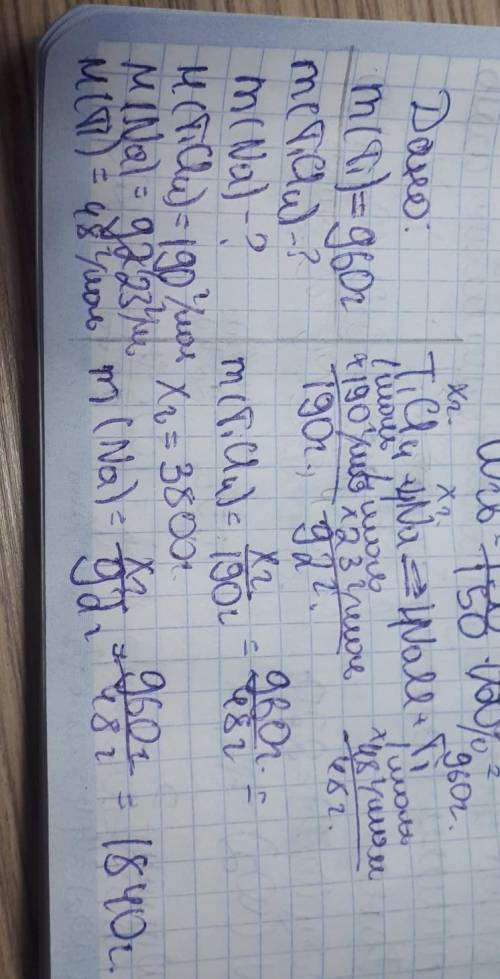 150 · 100% =
Дано:
m(Ti) = 960г
m(TiCl4) - ?
m(Na) - ?
M(TiCl4) = 190 г/моль
M(Na) = 23 г/м
M(Ti) = 48 г/моль
xг. xг. 960г.
TiCl4 + 4Na => 4NaCl + Ti
1моль 4моль 1моль
x190 г/моль x23 г/моль x48 г/моль
190г. 92г. 48г.
m(TiCl4) = xг / 190г = 960г. / 48г =
x2 = 3800г.
m(Na) = xг / 92г = 960г / 48г = 1840г.